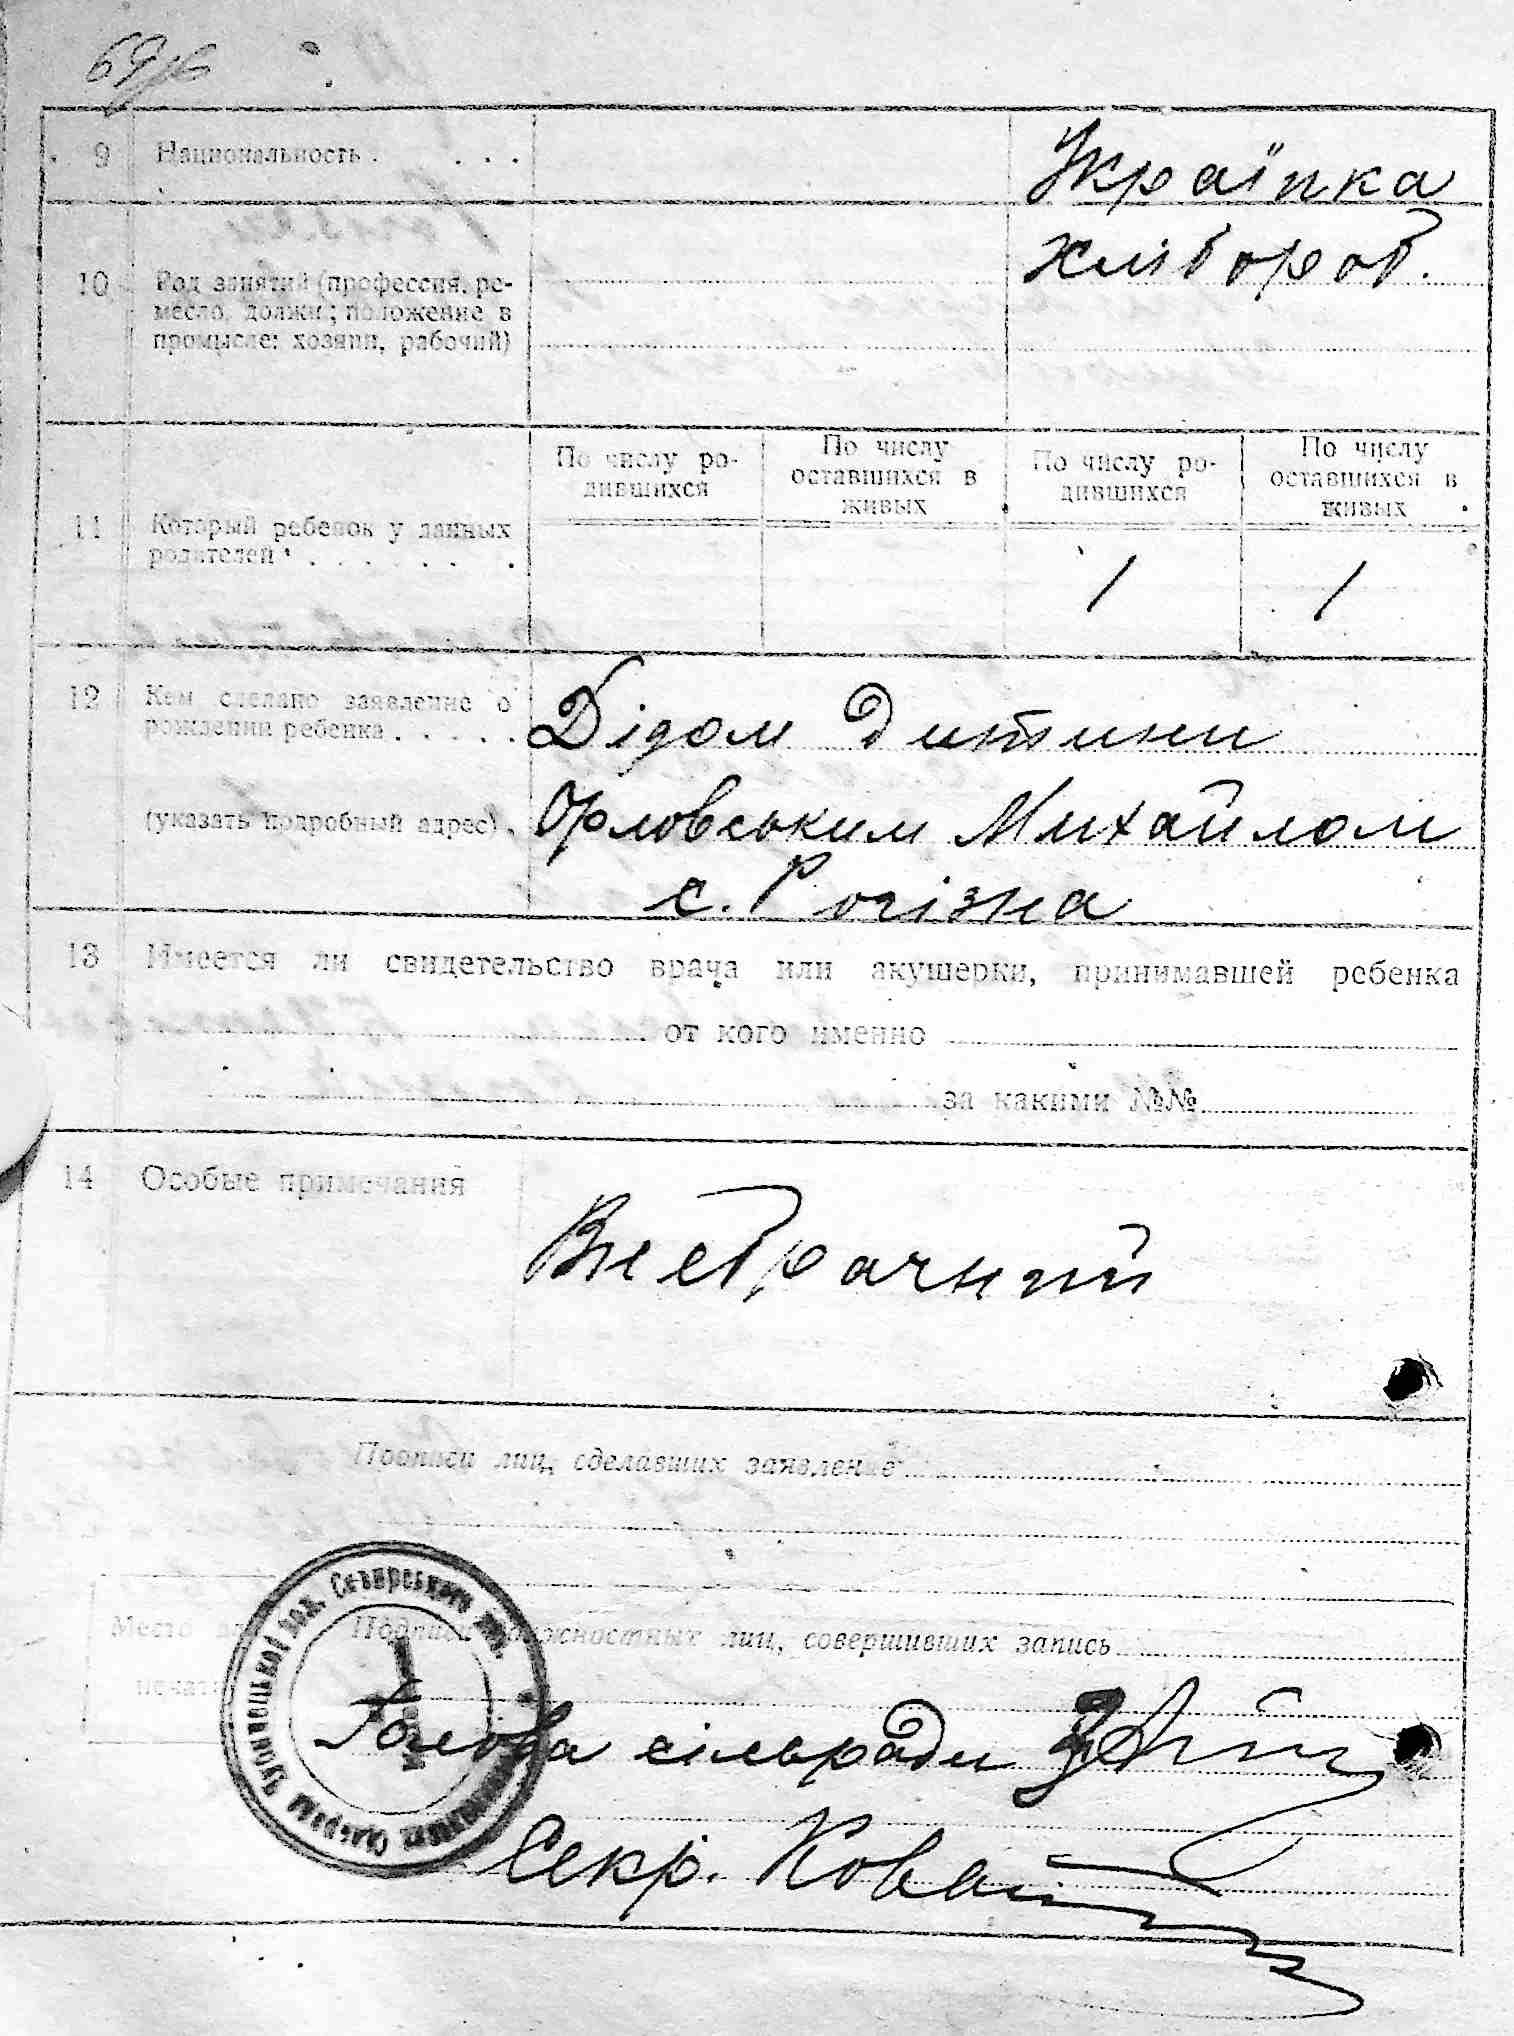 9 Национальность . . . . Українка
10 Род занятий (профессия, ре-
месло, должн; положение в
промысле: хозяин, рабочий)
хлібороб.
По числу ро-
дившихся
По числу
оставшихся в
живых
По числу ро-
дившихся
По числу
оставшихся в
живых
11 Который ребенок у данных
родителей
1 1
12 Кем сделано заявление о
рождении ребенка . . . . .
(указать подробный адрес) .
Дідом дитини
Орловським Михайлом
с. Рогізна
13 Имеется ли свидетельство врача или акушерки, принимавшей ребенка
от кого именно
за какими №№
14 Особые примечания
Внебрачний
Подписи лиц, сделавших заявление
Место
Подписи должностных лиц, совершивших запись
печати
Голова сільради
Секр.